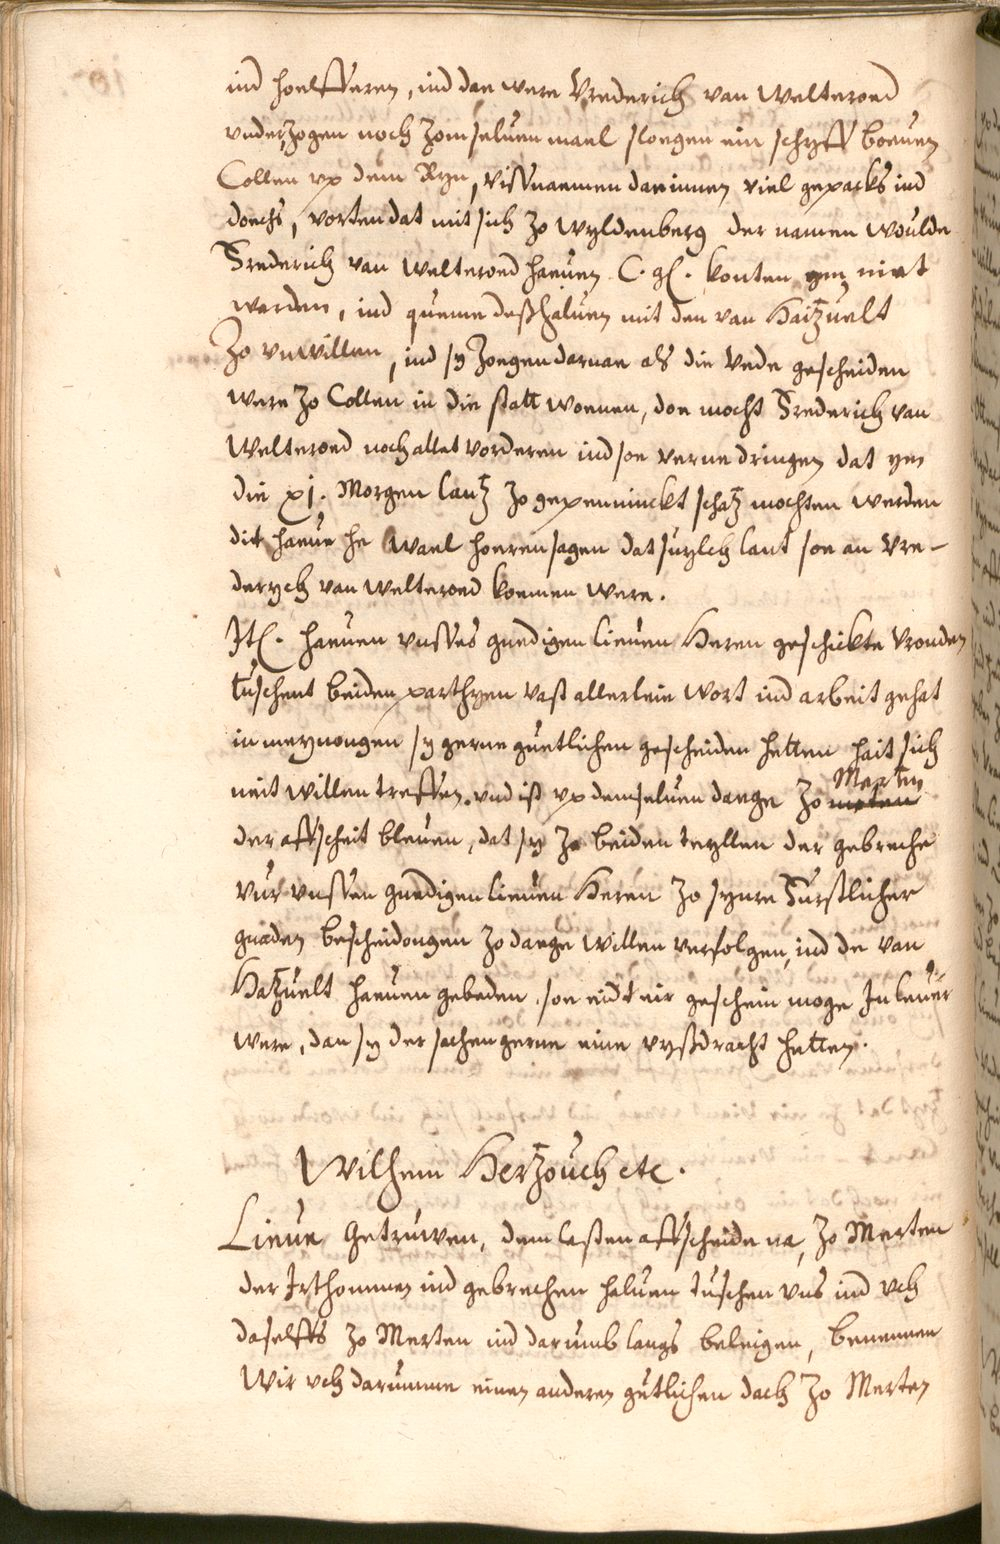 ind hoelfferen, ind dan were Vrederich van Welteroed
vnderzogen noch zom seluen mael sloegen ein schyff boeuen
Collen vp dem Ryn, vissnaemen darinnen viel gepacks ind
doechs, vorten dat mit sich zo Wyldenberg der namen woulde
Frederich van Welteroed haeuen C. gl. konten yem niet
werden, ind queme deßhaluen mit den van Haitzuelt
zo vnwillen, ind sy zoegen daruan als die Vede gescheiden
were zo Collen in die statt woenen, doe mocht Frederich van
Welteroed noch allet vorderen ind soe verne dringen dat yem
die xj. Morgen lantz zo gepennincktschatz mochten werden
dit haeue he wael hoeren sagen dat sulch lant soe an Vre-
derych van Welteroed koemen were.
Itl. haeuen vnsses gnedigen lieuen Heren geschickte Vronden
tuschent beiden parthyen vast allerleie wort ind arbeit gehat
in meynongen sy gerne guetlichen gescheiden hetten hait sich
neit willen treffen. vnd ist vp demseluen dage zo Merten
der affscheit bleuen, dat sy zo beiden teyllen der gebreche
vur vnssen gnedigen lieuen Heren zo synre Furstlicher
gnaden bescheidongen zo dage willen verfolgen, ind de van
Hatzuelt haeuen gebeden, soe eirst eir geschein moge In leuer
were, dan sy der sachen gerne eine vyßdracht hetten.
Wilhem Hertzouch etc.
Lieue Getruwen, dem lesten affscheide na, zo Merten
der Irthommen ind gebrechen haluen tuschen vns ind vch
daselffs zo Merten ind darumb langs beleigen, benennen
Wir vch darumme einen anderen gutlichen dach zo Merten